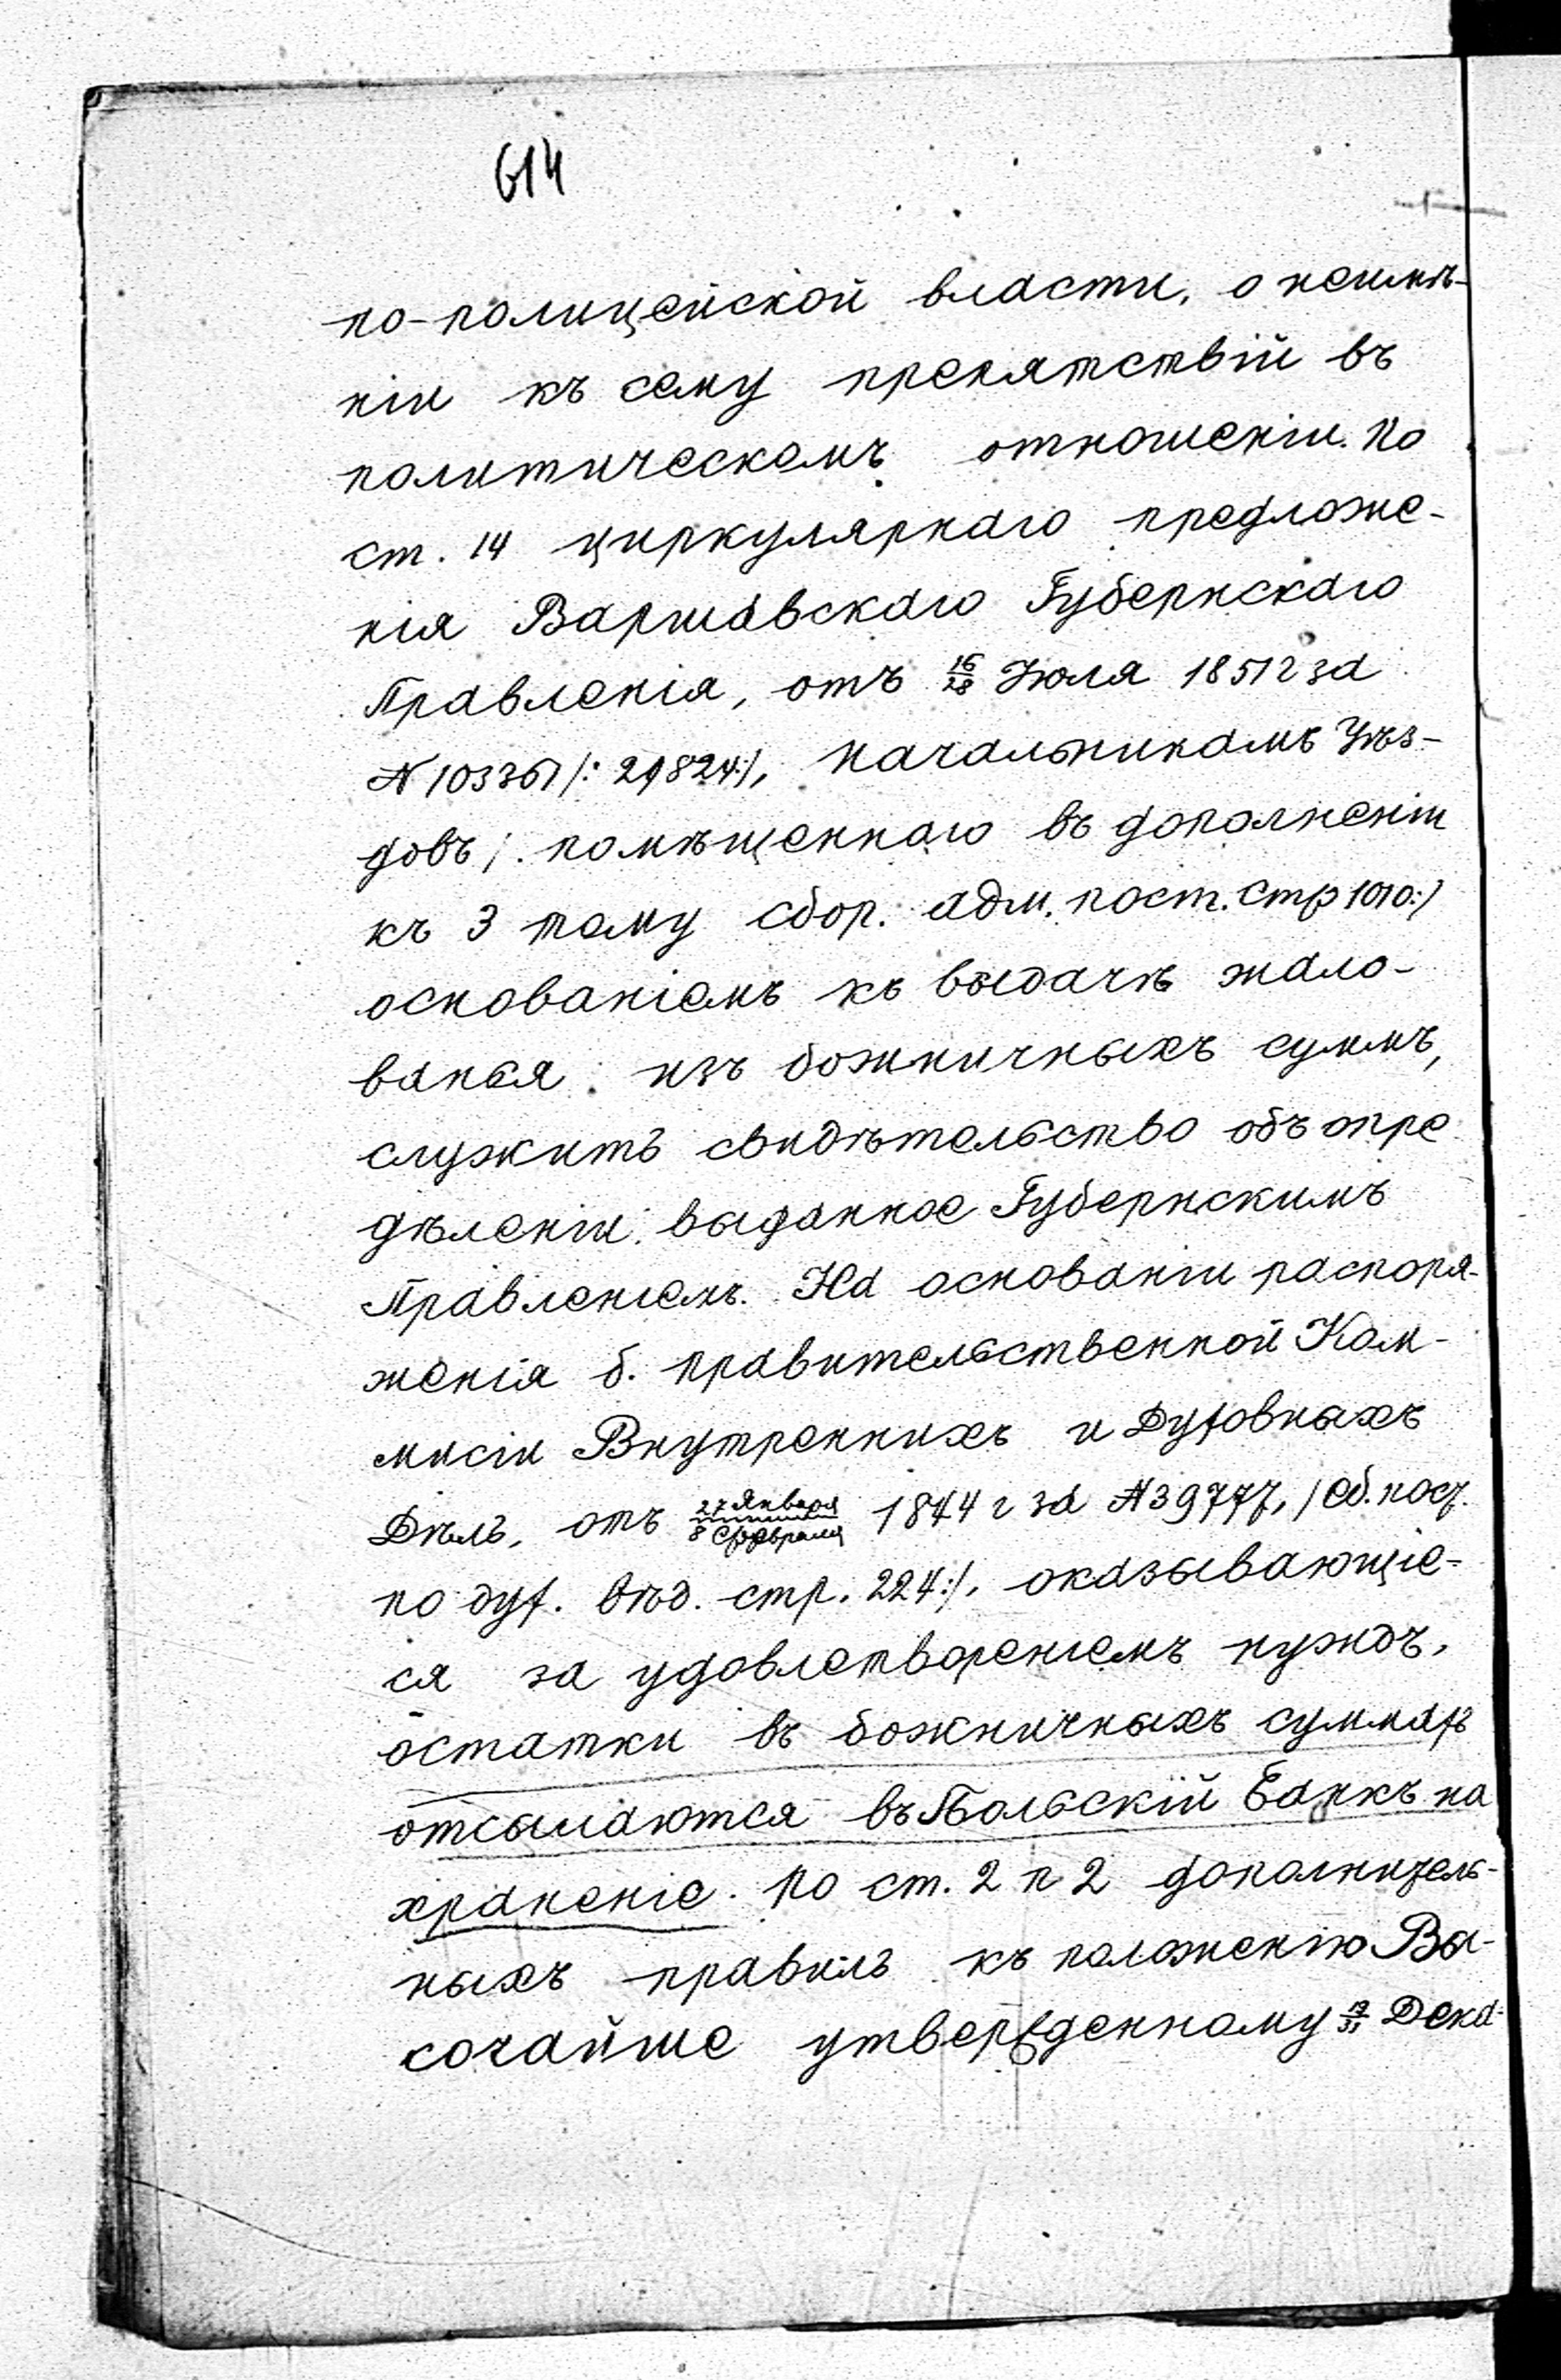 614
по-полицейской власти, о неимѣ-
ніи къ сему препятствій въ
политическомъ отношеніи. По
ст. 14 циркулярнаго предложе-
нія Варшавскаго Губернскаго
Правленія, отъ 16/28 Іюля 1851 г за
№ 103367/: 29824:/, Начальникамъ Уѣз-
довъ /: помѣщеннаго въ дополненіи
къ 3 тому сбор. адм. пост. стр 1010:/
основаніемъ къ выдачѣ жало-
ванья изъ божничныхъ суммъ,
служитъ свидѣтельство объ опре
дѣленіи, выданное Губернскимъ
Правленіемъ. На основаніи распоря-
женія б. Правительственной Ком-
мисіи Внутреннихъ и Духовныхъ
Дѣлъ, отъ 27 Января/8 Февраля 1844 г за № 39777, /Сб. пост.
по дух. вѣд. стр. 224:/, оказывающіе-
ся за удовлетвореніемъ нуждъ,
остатки въ божничныхъ суммахъ
отсылаются въ Польскій Банкъ на
храненіе. По ст. 2 п 2 дополнитель-
ныхъ правилъ къ положенію Вы-
сочайше утвержденному 19/31 Дека-